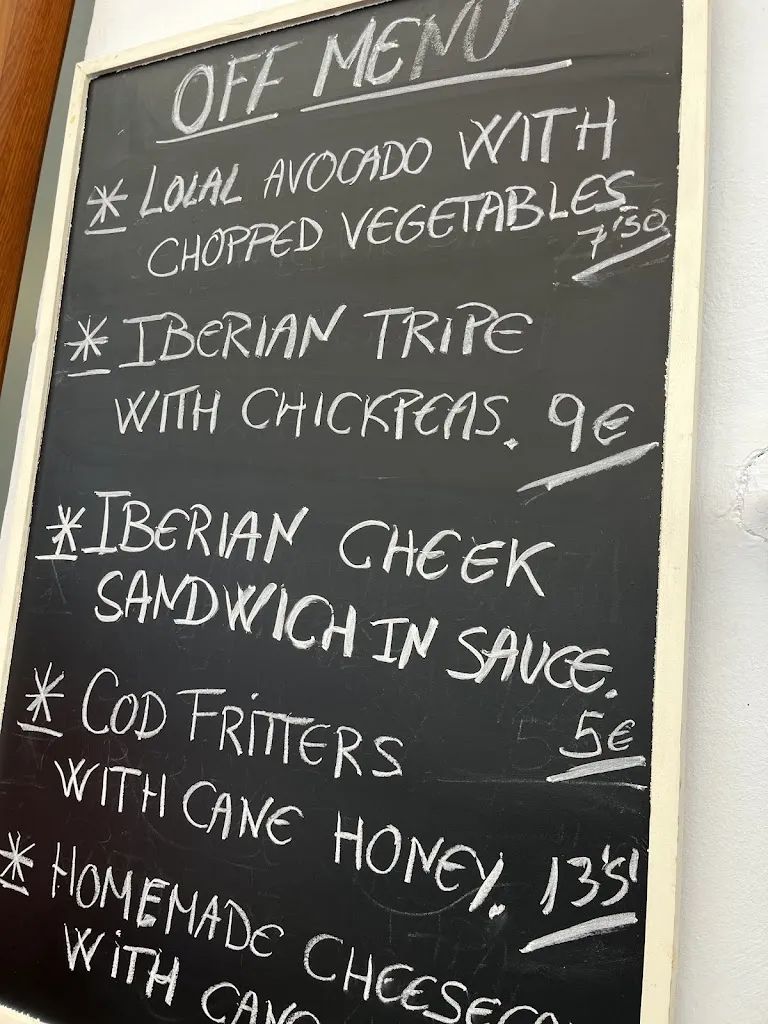 OFF MENU
* LOLAL AVOCADO WITH
CHOPPED VEGETABLES
7'50
* IBERIAN TRIPE
WITH CHICKPEAS. 9€
* IBERIAN CHEEK
SANDWICH IN SAUCE.
5€
* COD FRITTERS
WITH CANE HONEY.
* HOMEMADE
WITH